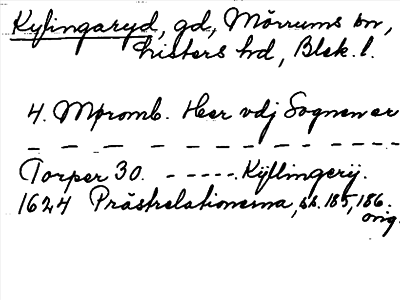 Kylingaryd, gd, Mörrums sn,
Listers hd, Blek. l.
4. Mpromb. Her vdj Sognen er
— — — — — — — — — — — —
Torper 30. - - - - - Kÿllingerÿ.
1624 Prästrelationerna, ss. 185, 186.
orig.